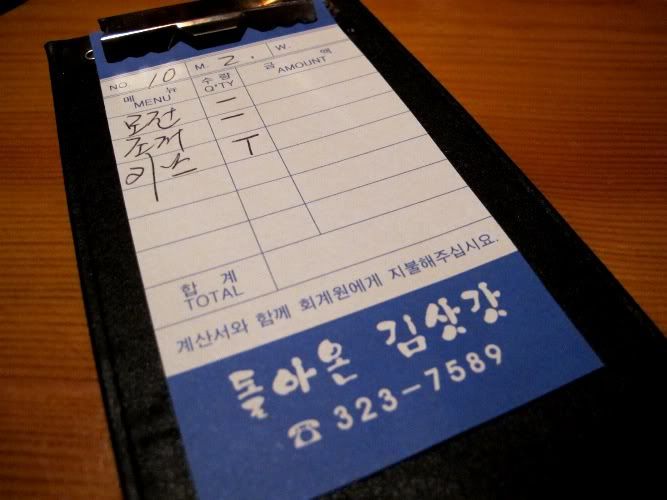 NO. 10 M. 2. W.
메 뉴 수 량 금 액
MENU Q'TY AMOUNT
모전 一
조꺼 一
카스 T
합 계
TOTAL
계산서와 함께 회계원에게 지불해주십시요.
돌아온 김삿갓
☎ 323-7589